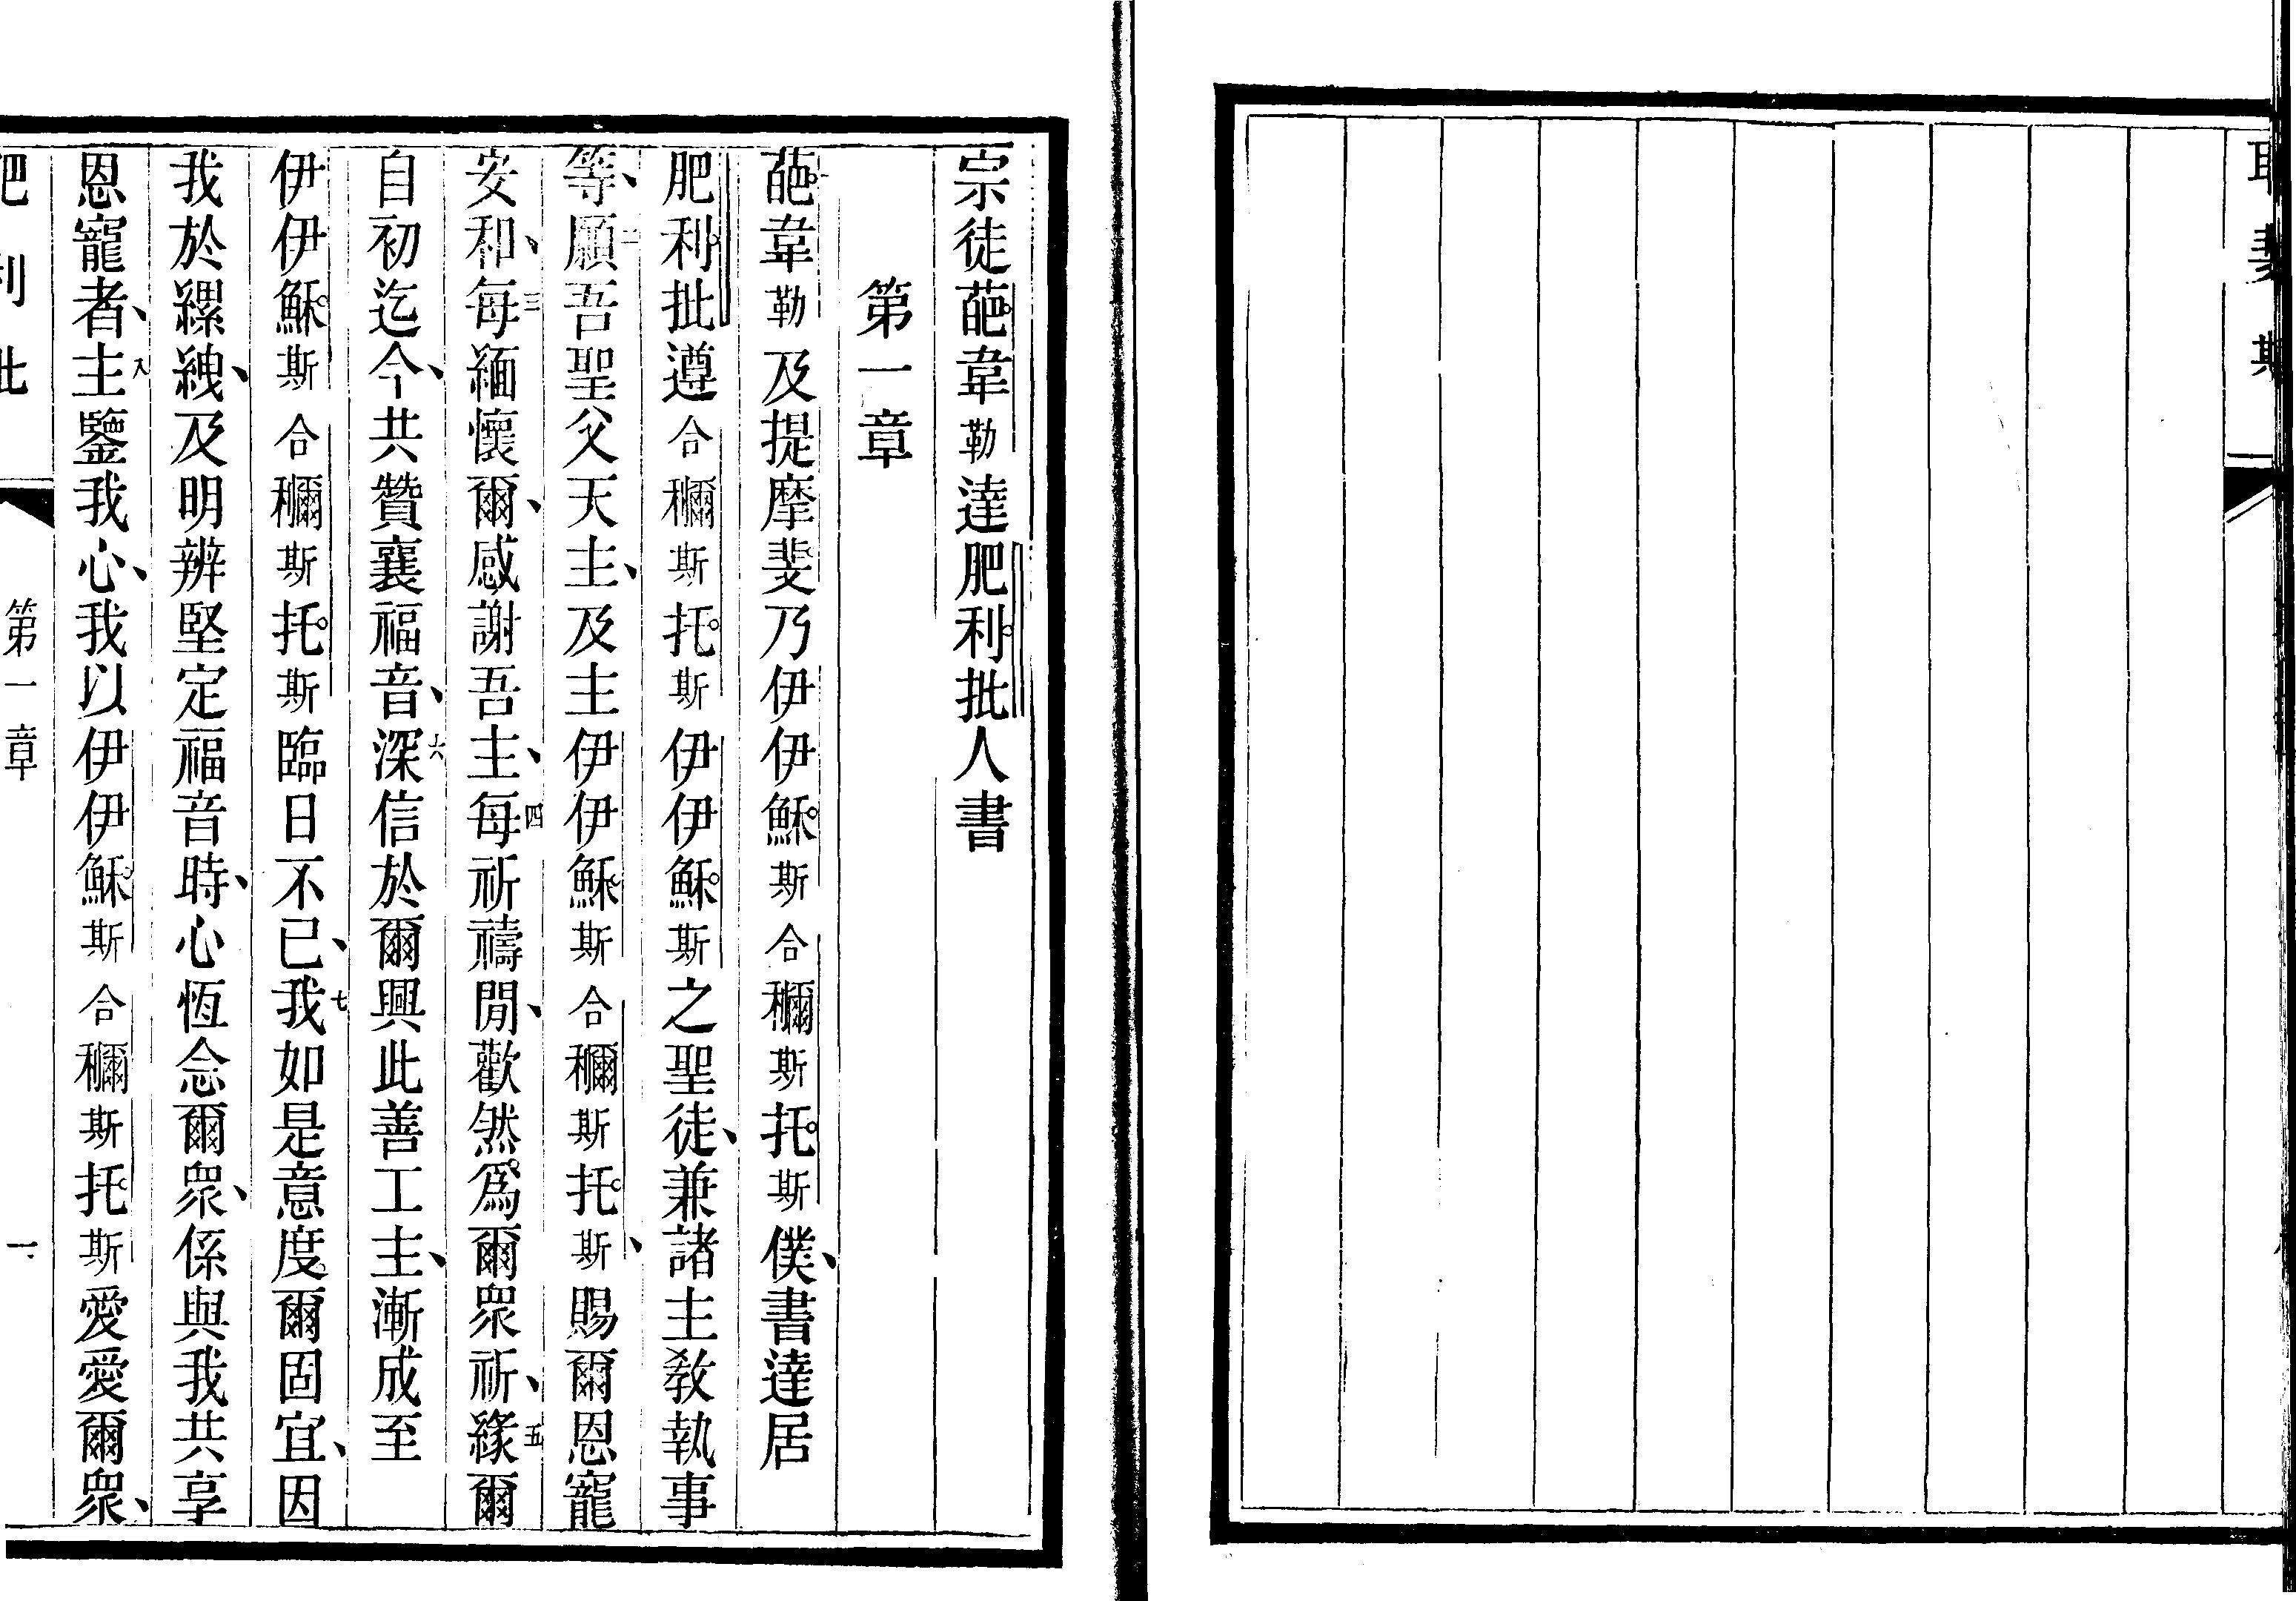 宗徒葩韋勒達肥利批人書
第一章
一葩韋勒及提摩斐乃伊伊穌斯合穪斯托斯僕、書達居
肥利批遵合穪斯托斯伊伊穌斯之聖徒、兼諸主敎執事
等、二願吾聖父天主、及主伊伊穌斯合穪斯托斯、賜爾恩寵
安和、三每緬懷爾、感謝吾主、四每祈禱閒、歡然爲爾眾祈、五緣爾
自初迄今、共贊襄福音、六深信於爾興此善工主、漸成至
伊伊穌斯合穪斯托斯臨日不已、七我如是意度爾固宜、因
我於縲絏、及明辨堅定福音時、心恆念爾眾、係與我共享
恩寵者、八主鑒我心、我以伊伊穌斯合穪斯托斯愛愛爾眾、
肥利批 第一章 一